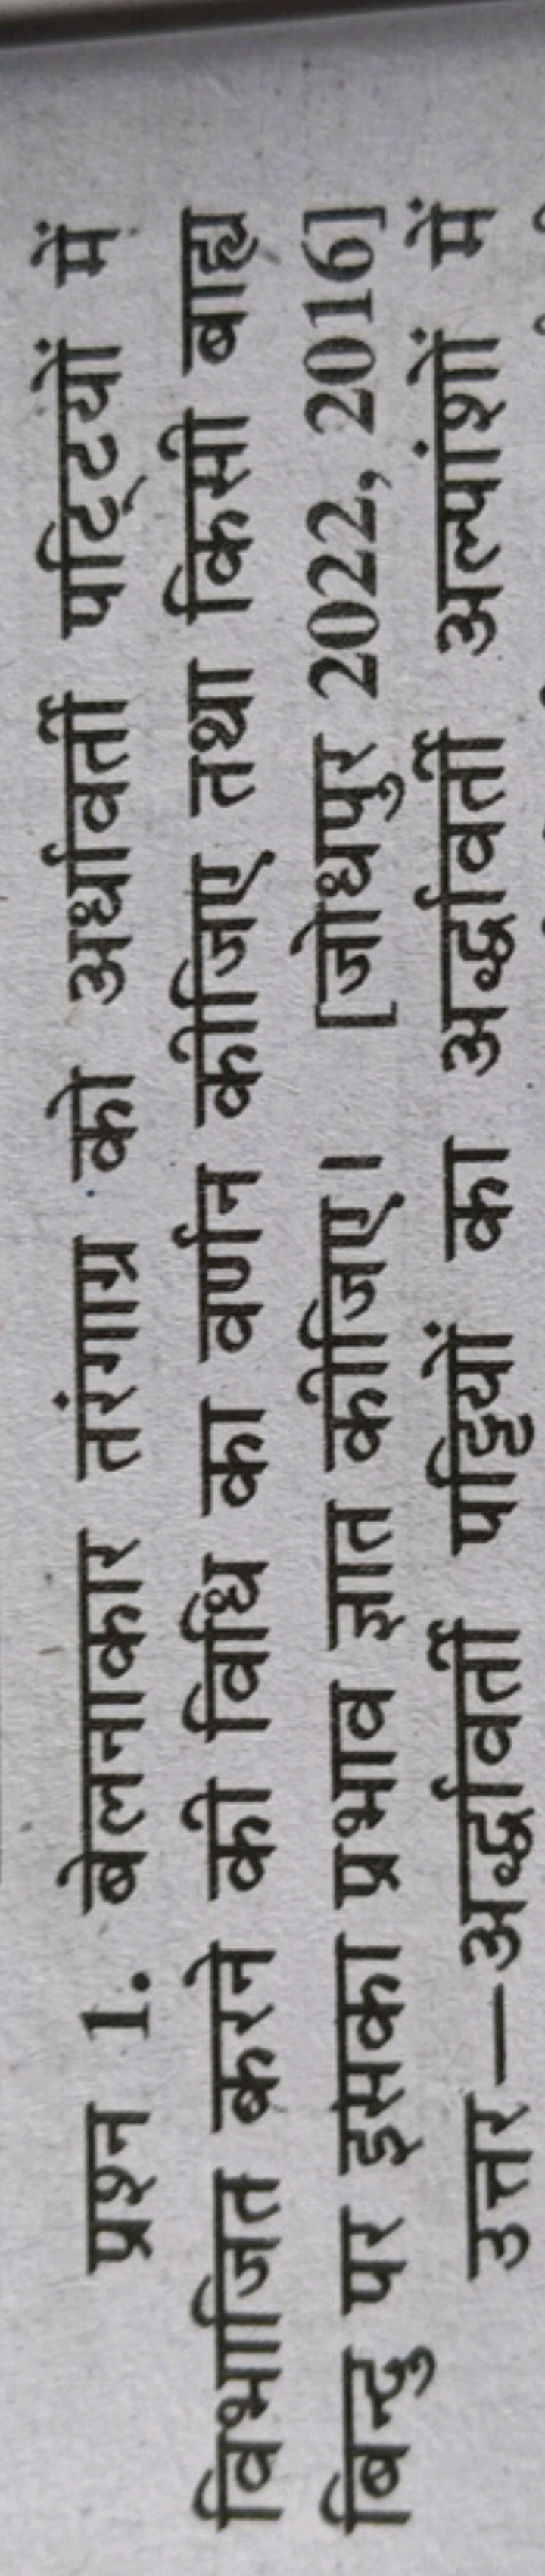 प्रश्न 1. बेलनाकार तरंगाग्र को अर्धावर्ती पट्टियों में
विभाजित करने की विधि का वर्णन कीजिए तथा किसी बाह्य
बिन्दु पर इसका प्रभाव ज्ञात कीजिए। [जोधपुर 2022, 2016]
उत्तर—अर्द्धावर्ती पट्टियों का अर्द्धावर्ती अल्पांशों में